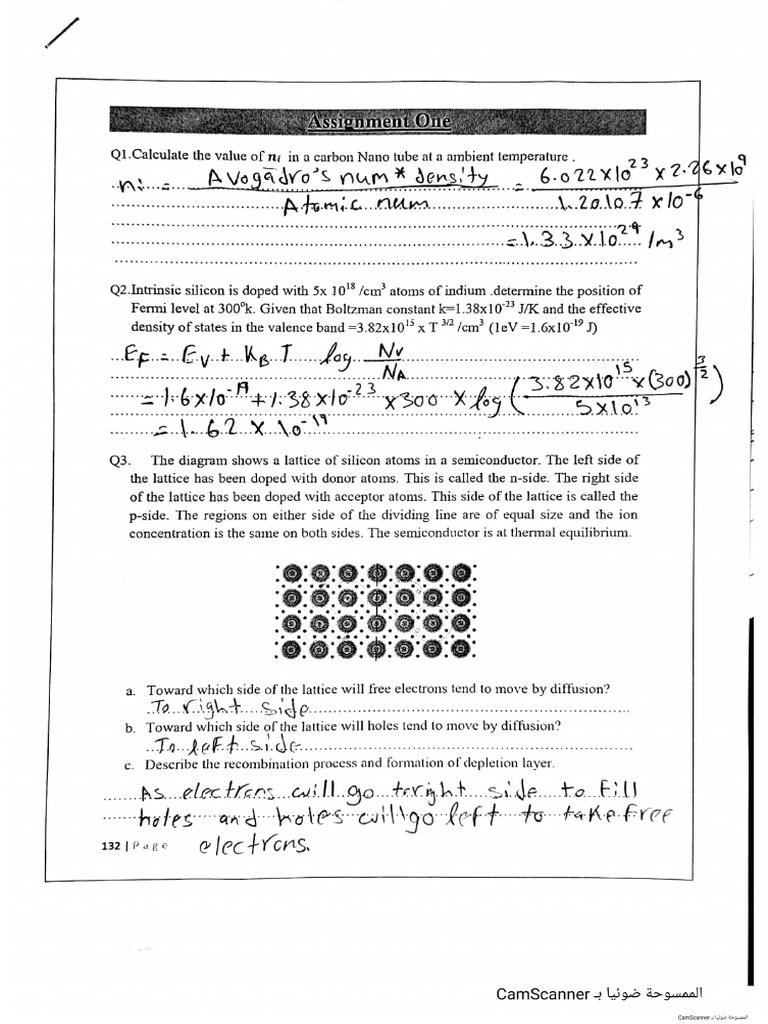 Assignment One
Q1.Calculate the value of nᵢ in a carbon Nano tube at a ambient temperature .
ni = Avogadro's num * density / Atomic num = 6.022x10²³ x 2.26x10⁹ / 1.20107 x10⁻⁶
= 1.33 x10²⁹ /m³
Q2.Intrinsic silicon is doped with 5x 10¹⁸ /cm³ atoms of indium .determine the position of
Fermi level at 300°k. Given that Boltzman constant k=1.38x10⁻²³ J/K and the effective
density of states in the valence band =3.82x10¹⁵ x T ³/² /cm³ (1eV =1.6x10⁻¹⁹ J)
EF = Ev + KB T log Nv / NA
= 1.6x10⁻¹⁹ + 1.38x10⁻²³ x300 x log ( 3.82x10¹⁵ x(300)³/² / 5x10¹³ )
= 1.62 x 10⁻¹⁹
Q3. The diagram shows a lattice of silicon atoms in a semiconductor. The left side of
the lattice has been doped with donor atoms. This is called the n-side. The right side
of the lattice has been doped with acceptor atoms. This side of the lattice is called the
p-side. The regions on either side of the dividing line are of equal size and the ion
concentration is the same on both sides. The semiconductor is at thermal equilibrium.
a. Toward which side of the lattice will free electrons tend to move by diffusion?
To right side
b. Toward which side of the lattice will holes tend to move by diffusion?
To left side
c. Describe the recombination process and formation of depletion layer.
As electrons will go to right side to fill
holes and holes will go left to take free
132 | Page electrons.
الممسوحة ضوئيا بـ CamScanner
الممسوحة ضوئيا بـ CamScanner